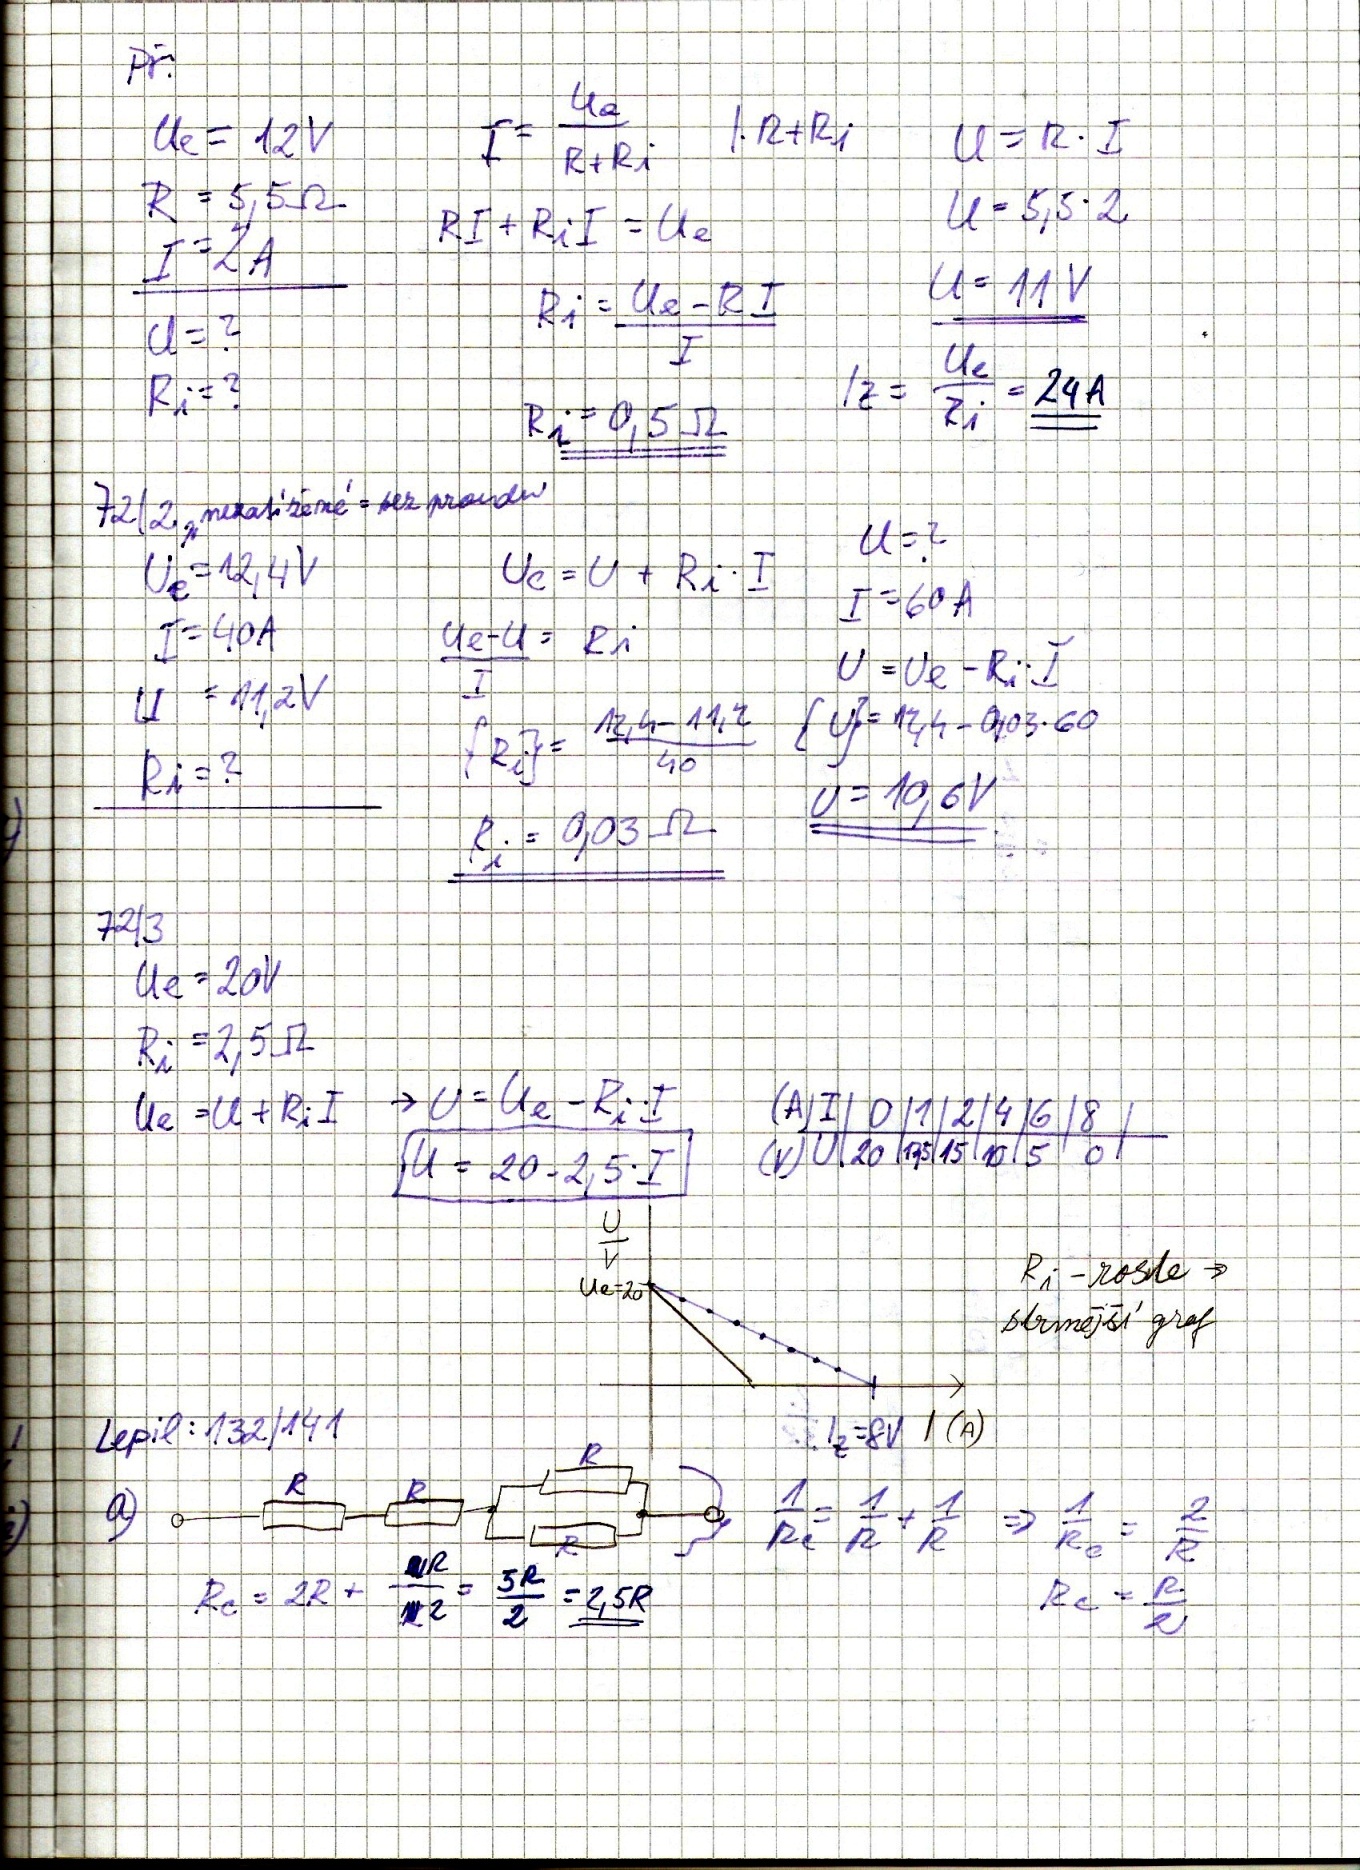 Př:
Ue = 12V
R = 5,5Ω
I = 2A
U = ?
Ri = ?
I = Ue/(R+Ri) /·R+Ri
RI + RiI = Ue
Ri = (Ue - RI)/I
Ri = 0,5Ω
U = R·I
U = 5,5·2
U = 11V
Iz = Ue/Ri = 24A
72/2 „nezatížené = bez proudu"
Ue = 12,4V
I = 40A
U = 11,2V
Ri = ?
Ue = U + Ri·I
(Ue-U)/I = Ri
{Ri} = (12,4-11,2)/40
Ri = 0,03Ω
U = ?
I = 60A
U = Ue - Ri·I
{U} = 12,4 - 0,03·60
U = 10,6V
72/3
Ue = 20V
Ri = 2,5Ω
Ue = U + RiI → U = Ue - Ri·I
U = 20 - 2,5·I
(A) I | 0 | 1 | 2 | 4 | 6 | 8 |
(V) U | 20 | 17,5 | 15 | 10 | 5 | 0
U/V
Ue=20
Iz=8V I (A)
Ri - roste →
strmější graf
Lepil: 132/141
a) R R R R
Rc = 2R + R/2 = 5R/2 = 2,5R
1/Rc = 1/R + 1/R ⇒ 1/Rc = 2/R
Rc = R/2